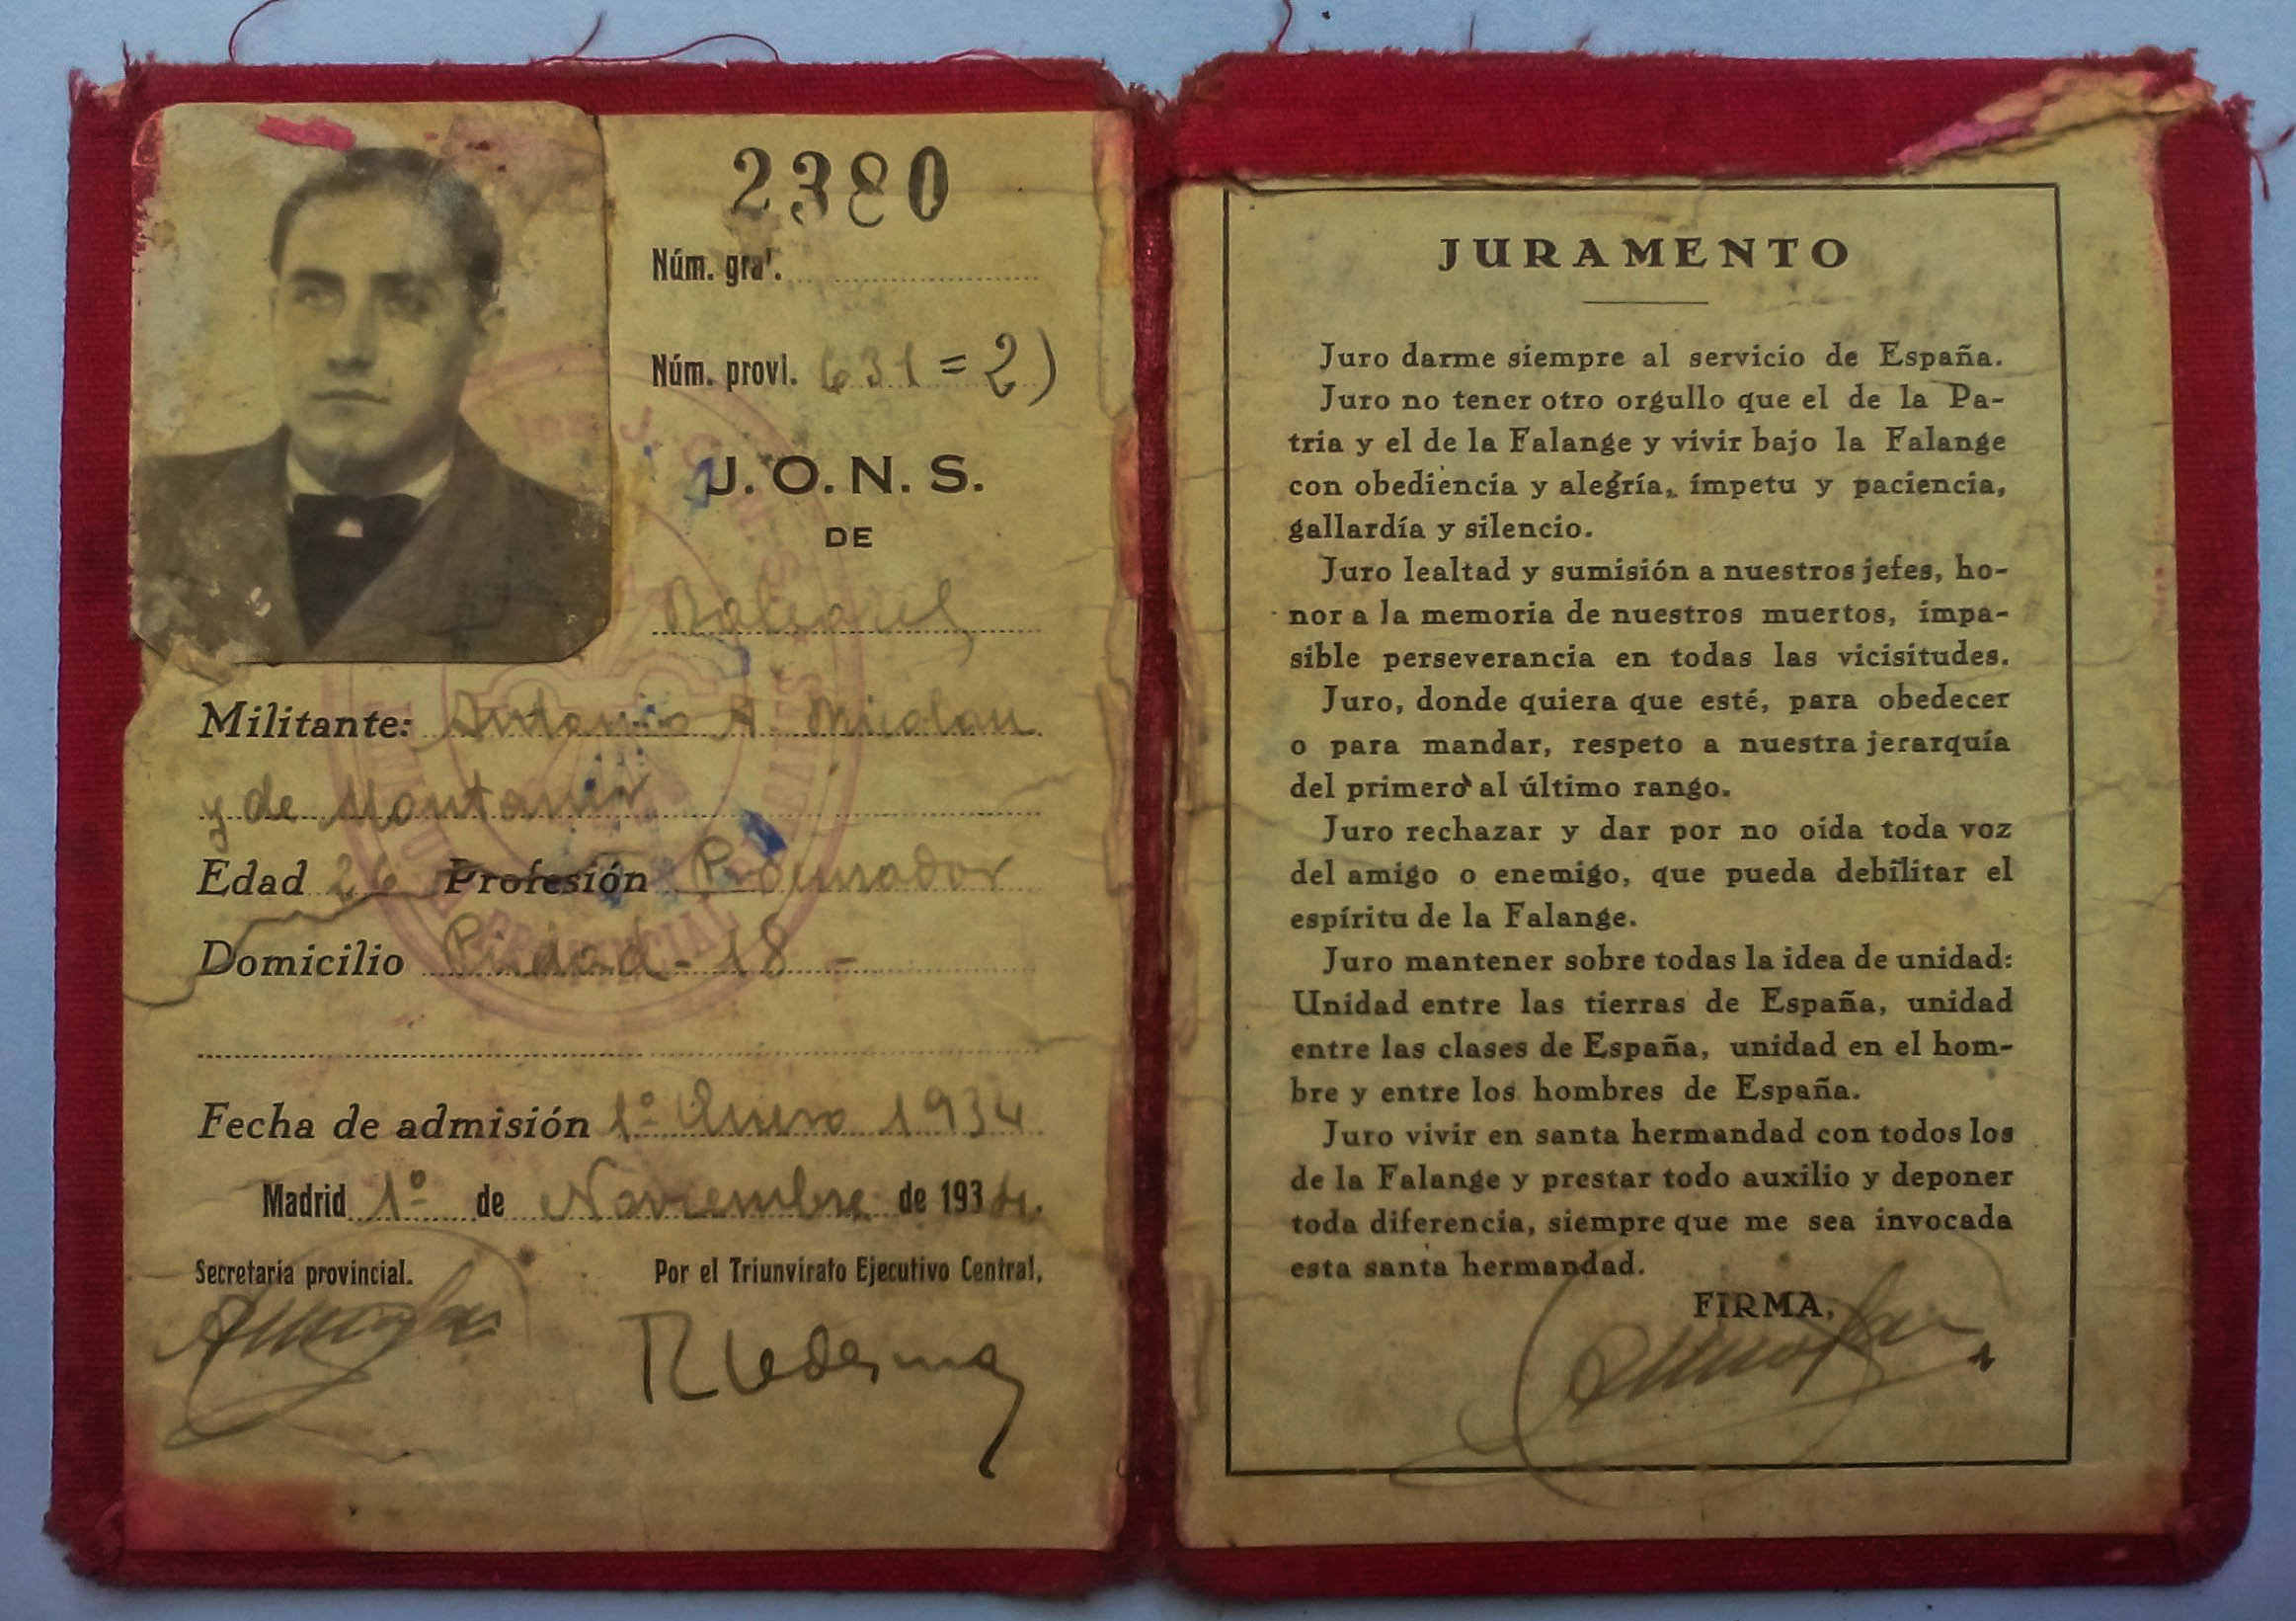 2380
Núm. gral.
Núm. provl. 631 = 2)
J. O. N. S.
DE
Baleares
Militante: Antonio A. Nicolau
y de Montaner
Edad 26 Profesión Procurador
Domicilio Piedad - 18 -
Fecha de admisión 1º Enero 1934
Madrid 1º de Noviembre de 1934.
Secretaria provincial. Por el Triunvirato Ejecutivo Central,
R Ledesma
JURAMENTO
Juro darme siempre al servicio de España.
Juro no tener otro orgullo que el de la Pa-
tria y el de la Falange y vivir bajo la Falange
con obediencia y alegría, ímpetu y paciencia,
gallardía y silencio.
Juro lealtad y sumisión a nuestros jefes, ho-
nor a la memoria de nuestros muertos, impa-
sible perseverancia en todas las vicisitudes.
Juro, donde quiera que esté, para obedecer
o para mandar, respeto a nuestra jerarquía
del primero al último rango.
Juro rechazar y dar por no oida toda voz
del amigo o enemigo, que pueda debilitar el
espíritu de la Falange.
Juro mantener sobre todas la idea de unidad:
Unidad entre las tierras de España, unidad
entre las clases de España, unidad en el hom-
bre y entre los hombres de España.
Juro vivir en santa hermandad con todos los
de la Falange y prestar todo auxilio y deponer
toda diferencia, siempre que me sea invocada
esta santa hermandad.
FIRMA,